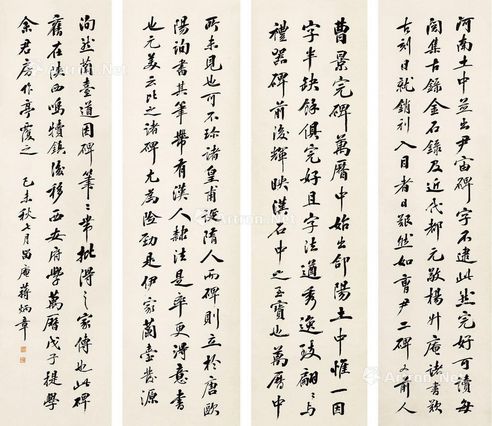 曹景完碑萬曆中始出郃陽土中惟一因
字半缺餘俱完好且字法遒秀逸致翩〻與
禮器碑前後輝映漢石中之至寶也萬曆中
河南土中並出尹宙碑字不逮此然完好可讀每
閱集古錄金石錄及近代都元敬楊升庵諸書歎
古刻日就銷剝入目者日艱然如曹尹二碑又前人
所未見也可不珍諸皇甫誕隋人而碑則立於唐歐
陽詢書其筆帶有漢人隸法是率更得意書
也元美云比之諸碑尤為險勁是伊家蘭臺發源
洵然蘭臺道因碑筆〻帶批得之家傳也此碑
舊在陝西鳴犢鎮後移西安府學萬曆戊子提學
余君房作亭覆之 己未秋七月 庵蔣炳章